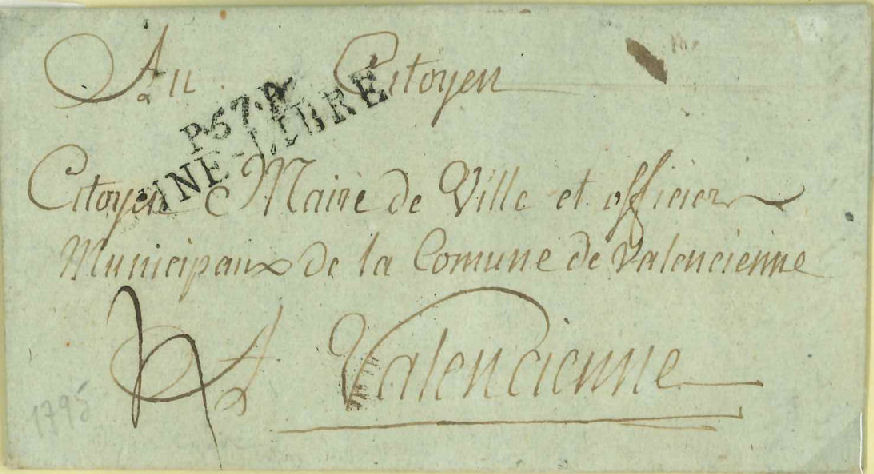 Au Citoyen
P.57.P.
UNE-LIBRE
Citoyen Maire de Ville et officier
Municipaux de la Comune de Valencienne
A Valencienne
1795